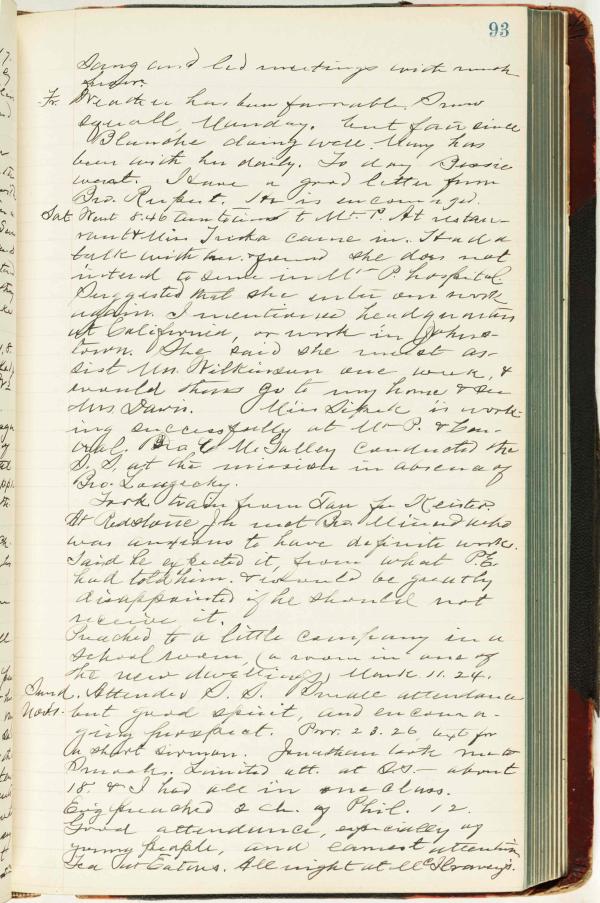 93
Sang and led meetings with much
favor.
Fr. Weather has been favorable. Snow
squall, Monday. but fair since
Blanche doing well. Mary has
been with her daily. To day Bessie
went. Have a good letter from
Bro. Rupert. He is encouraged.
Sat. Went 8.46 to Mt. P. At restau-
rant Miss Truska came in. Had a
talk with her & found she does not
intend to serve in Mt. P. hospital
Suggested that she enter our work
again. I mentioned headquarters
at California, or work in Johns-
town. She said she must as-
sist Mrs. Wilkinson one week, &
would then go to my home & see
Mrs Davis. Miss is work-
ing successfully at Mt P. &
Bro C McGalley conducted the
S. S. at the mission in absence of
Bro.
Took train from for Keister.
At Redstone Jn met Bro. who
was anxious to have definite work.
Said he expected it, from what P.E.
had told him. & would be greatly
disappointed if he should not
receive it.
Preached to a little company in a
school room, (a room in one of
the new dwellings) Mark 11.24.
Sund. Attended S. S. Small attendance
Nov. but good spirit, and encoura-
ging prospect. Prov. 23.26, text for
a short sermon. Jonathan took me to
Smock. Limited att. at S.S. - about
18. & I had all in one class.
Ev'g preached 2 ch. of Phil. 12.
Good attendance, especially of
young people, and earnest attention
Tea at Eatons. All night at